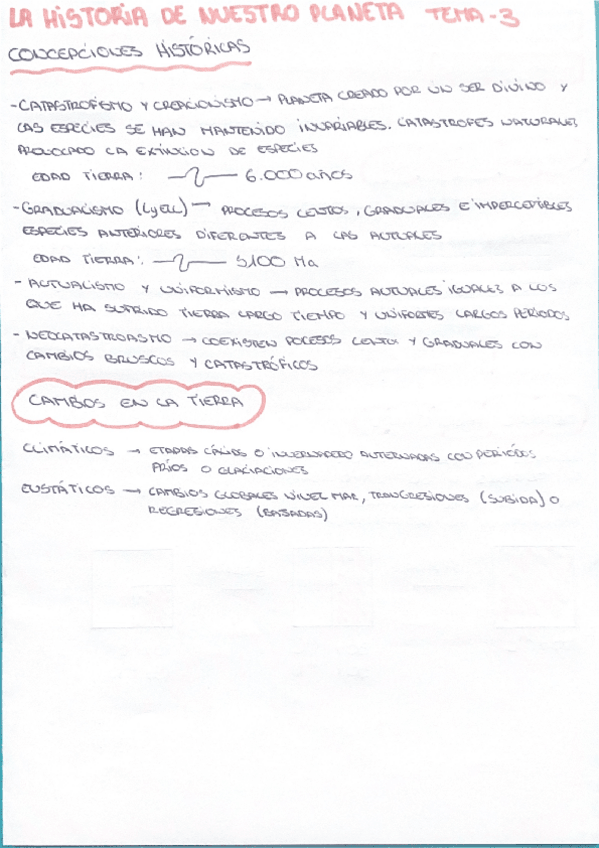 LA HISTORIA DE NUESTRO PLANETA TEMA-3
CONCEPCIONES HISTÓRICAS
-CATASTROFISMO Y CREACIONISMO → PLANETA CREADO POR UN SER DIVINO Y
LAS ESPECIES SE HAN MANTENIDO INVARIABLES. CATASTROFES NATURALES
PROVOCADO LA EXTINCION DE ESPECIES
EDAD TIERRA: 6.000 años
-GRADUALISMO (Lyell) — PROCESOS LENTOS, GRADUALES E IMPERCEPTIBLES
ESPECIES ANTERIORES DIFERENTES A LAS ACTUALES
EDAD TIERRA: 5100 Ma
- ACTUALISMO Y UNIFORMISMO → PROCESOS ACTUALES IGUALES A LOS
QUE HA SUFRIDO TIERRA LARGO TIEMPO Y UNIFORTES LARGOS PERIODOS
- NEOCATASTROASMO → COEXISTEN POCESOS LENTOS Y GRADUALES CON
CAMBIOS BRUSCOS Y CATASTRÓFICOS
CAMBIOS EN LA TIERRA
CLIMÁTICOS → ETAPAS CÁLIDAS O INVERNADERO ALTERNADAS CON PERIODOS
FRÍOS O GLACIACIONES
EUSTÁTICOS → CAMBIOS GLOBALES NIVEL MAR, TRANGRESIONES (SUBIDA) O
REGRESIONES (BAJADAS)